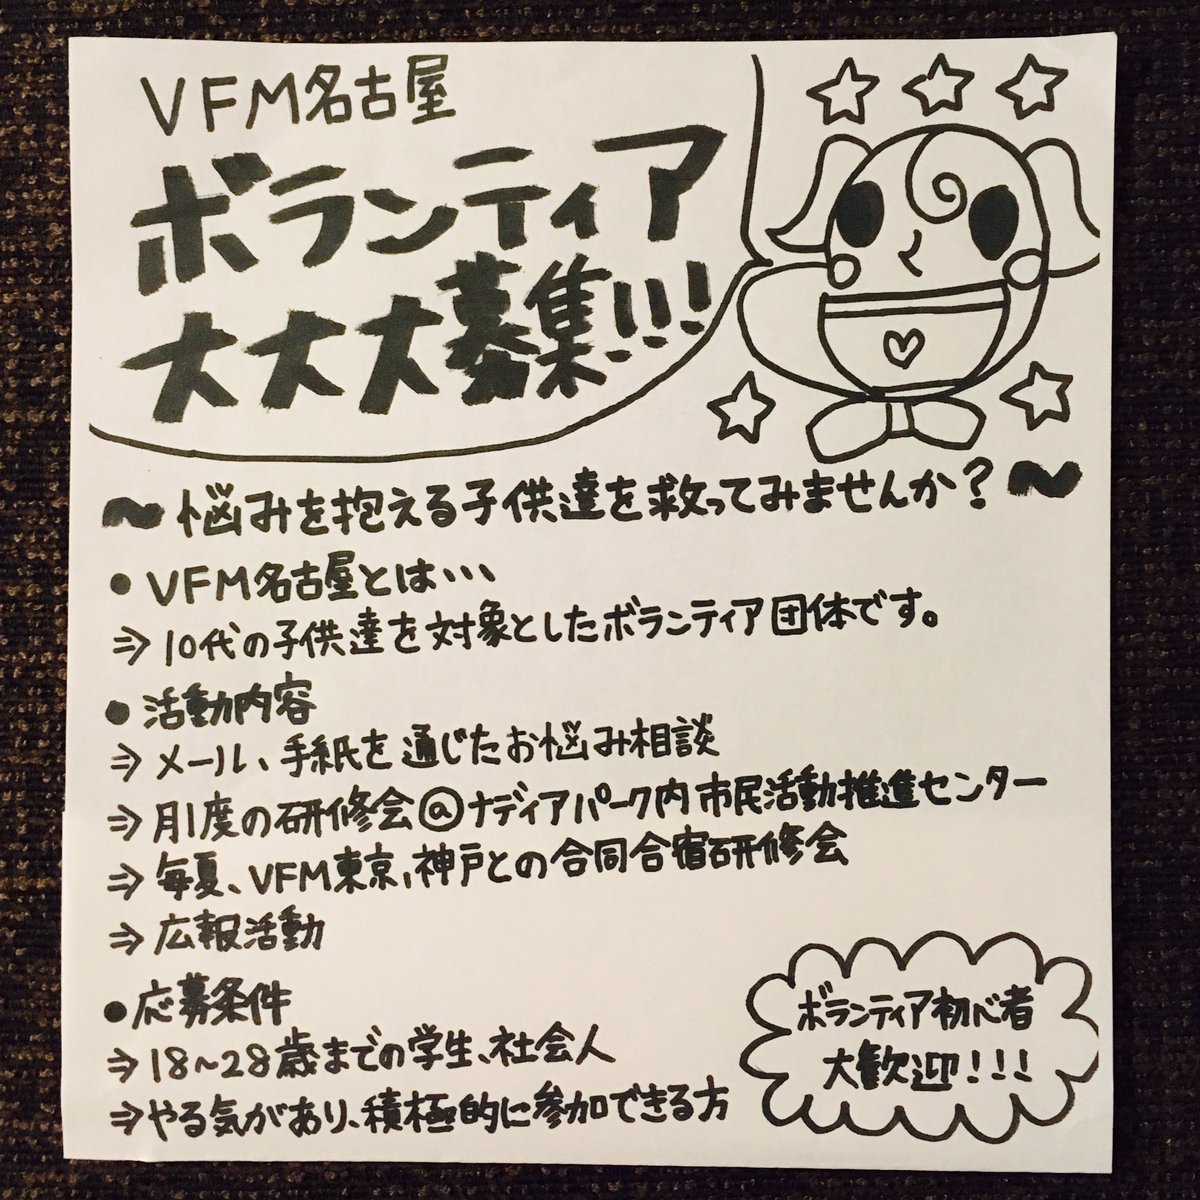 VFM名古屋
ボランティア
大大大募集!!!
〜悩みを抱える子供達を救ってみませんか?〜
●VFM名古屋とは…
⇒10代の子供達を対象としたボランティア団体です。
●活動内容
⇒メール、手紙を通じたお悩み相談
⇒月1度の研修会@ナディアパーク内市民活動推進センター
⇒毎夏、VFM東京、神戸との合同合宿研修会
⇒広報活動
●応募条件
⇒18~28歳までの学生、社会人
⇒やる気があり、積極的に参加できる方
ボランティア初心者
大歓迎!!!